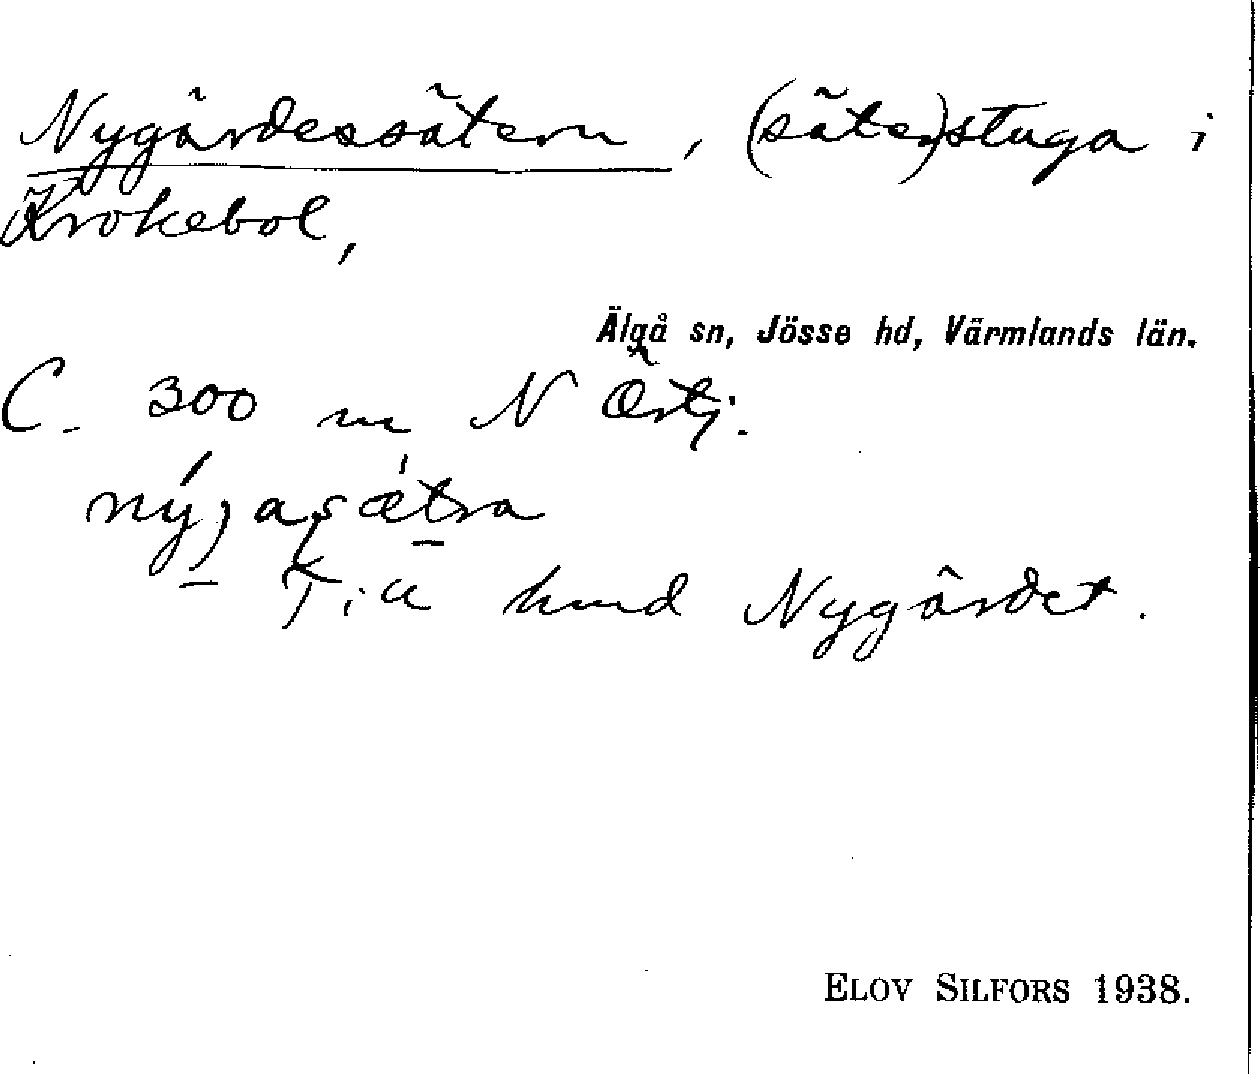 Nygårdessätern, (säter)stuga i
Krokebol,
Älgå sn, Jösse hd, Värmlands län.
C. 300 m N
nýjasætra
Till hmd Nygårdet.
ELOV SILFORS 1938.